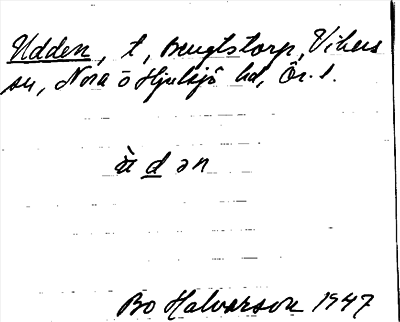 Udden, t, Bengtstorp, Vikers
sn, Nora o Hjulsjö hd, Ör. l.
ù d ə n
Bo Halvarson 1947